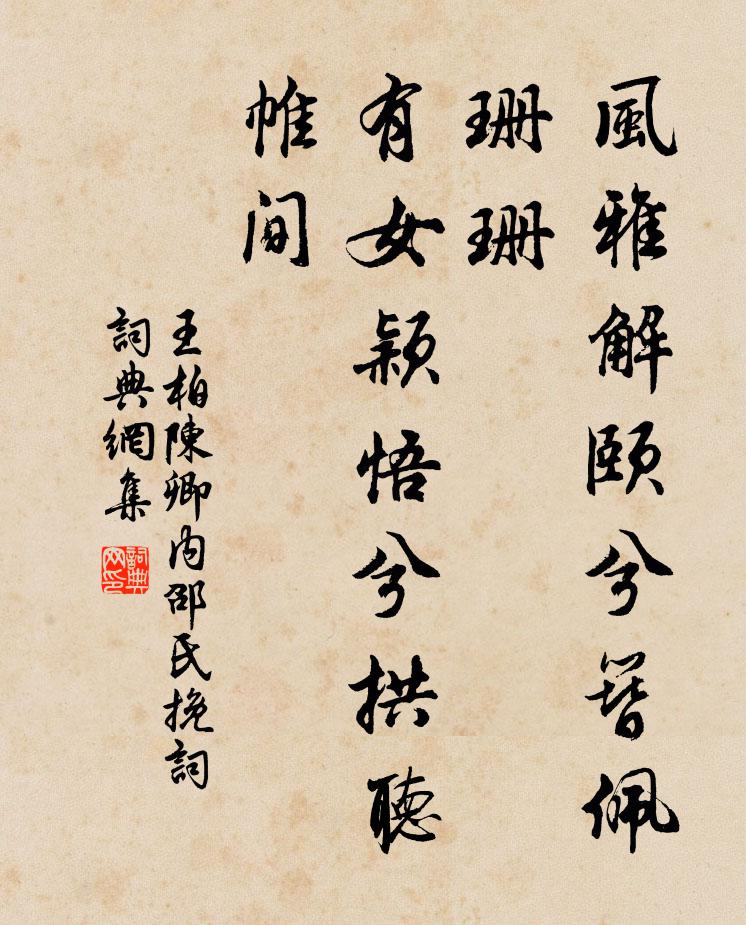 風雅解頤兮簪佩
珊珊
有女穎悟兮拱聽
帷间
王柏陳卿内邵氏挽詞
詞典網集
詞典
网印